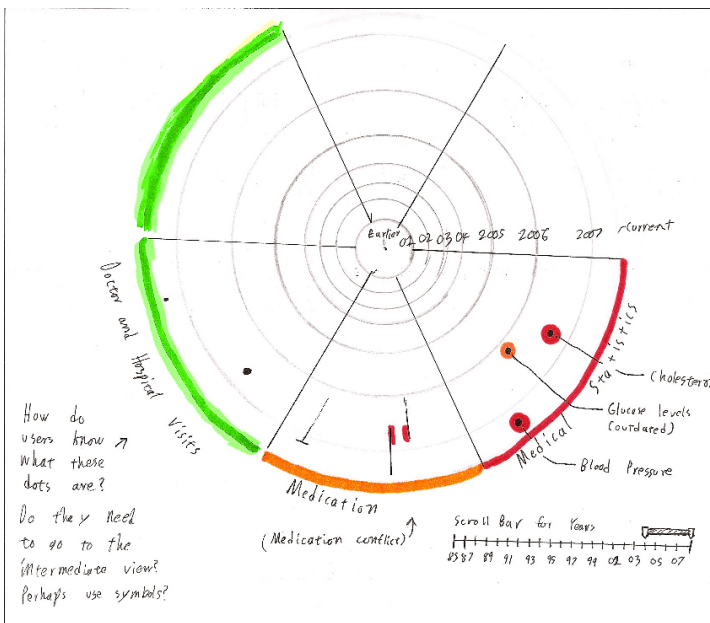 Earlier 01 02 03 04 2005 2006 2007 current
Doctor and Hospital Visits
Medication
Medical Statistics
Cholesterol
Glucose levels
(outdated)
Blood Pressure
(Medication conflict)
How do
users know
what these
dots are?
Do they need
to go to the
intermediate view?
Perhaps use symbols?
Scroll Bar for Years
85 87 89 91 93 95 97 99 01 03 05 07